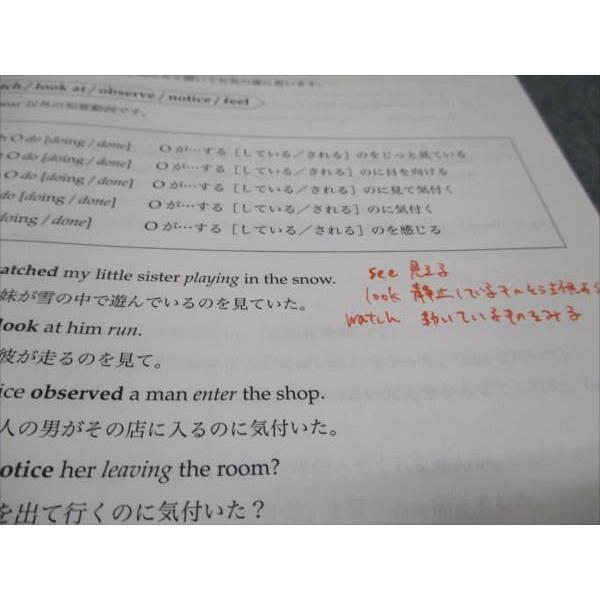 tch / look at / observe / notice / feel
hear 以外の知覚動詞です。
h O do [doing / done] Oが…する［している／される］のをじっと見ている
O do [doing / done] Oが…する［している／される］のに目を向ける
O do [doing / done] Oが…する［している／される］のに見て気付く
do [doing / done] Oが…する［している／される］のに気付く
doing / done] Oが…する［している／される］のを感じる
atched my little sister playing in the snow.
妹が雪の中で遊んでいるのを見ていた。
look at him run.
彼が走るのを見て。
ice observed a man enter the shop.
人の男がその店に入るのに気付いた。
otice her leaving the room?
を出て行くのに気付いた？
see 見える
look 静止しているものを注視する
watch 動いているものをみる